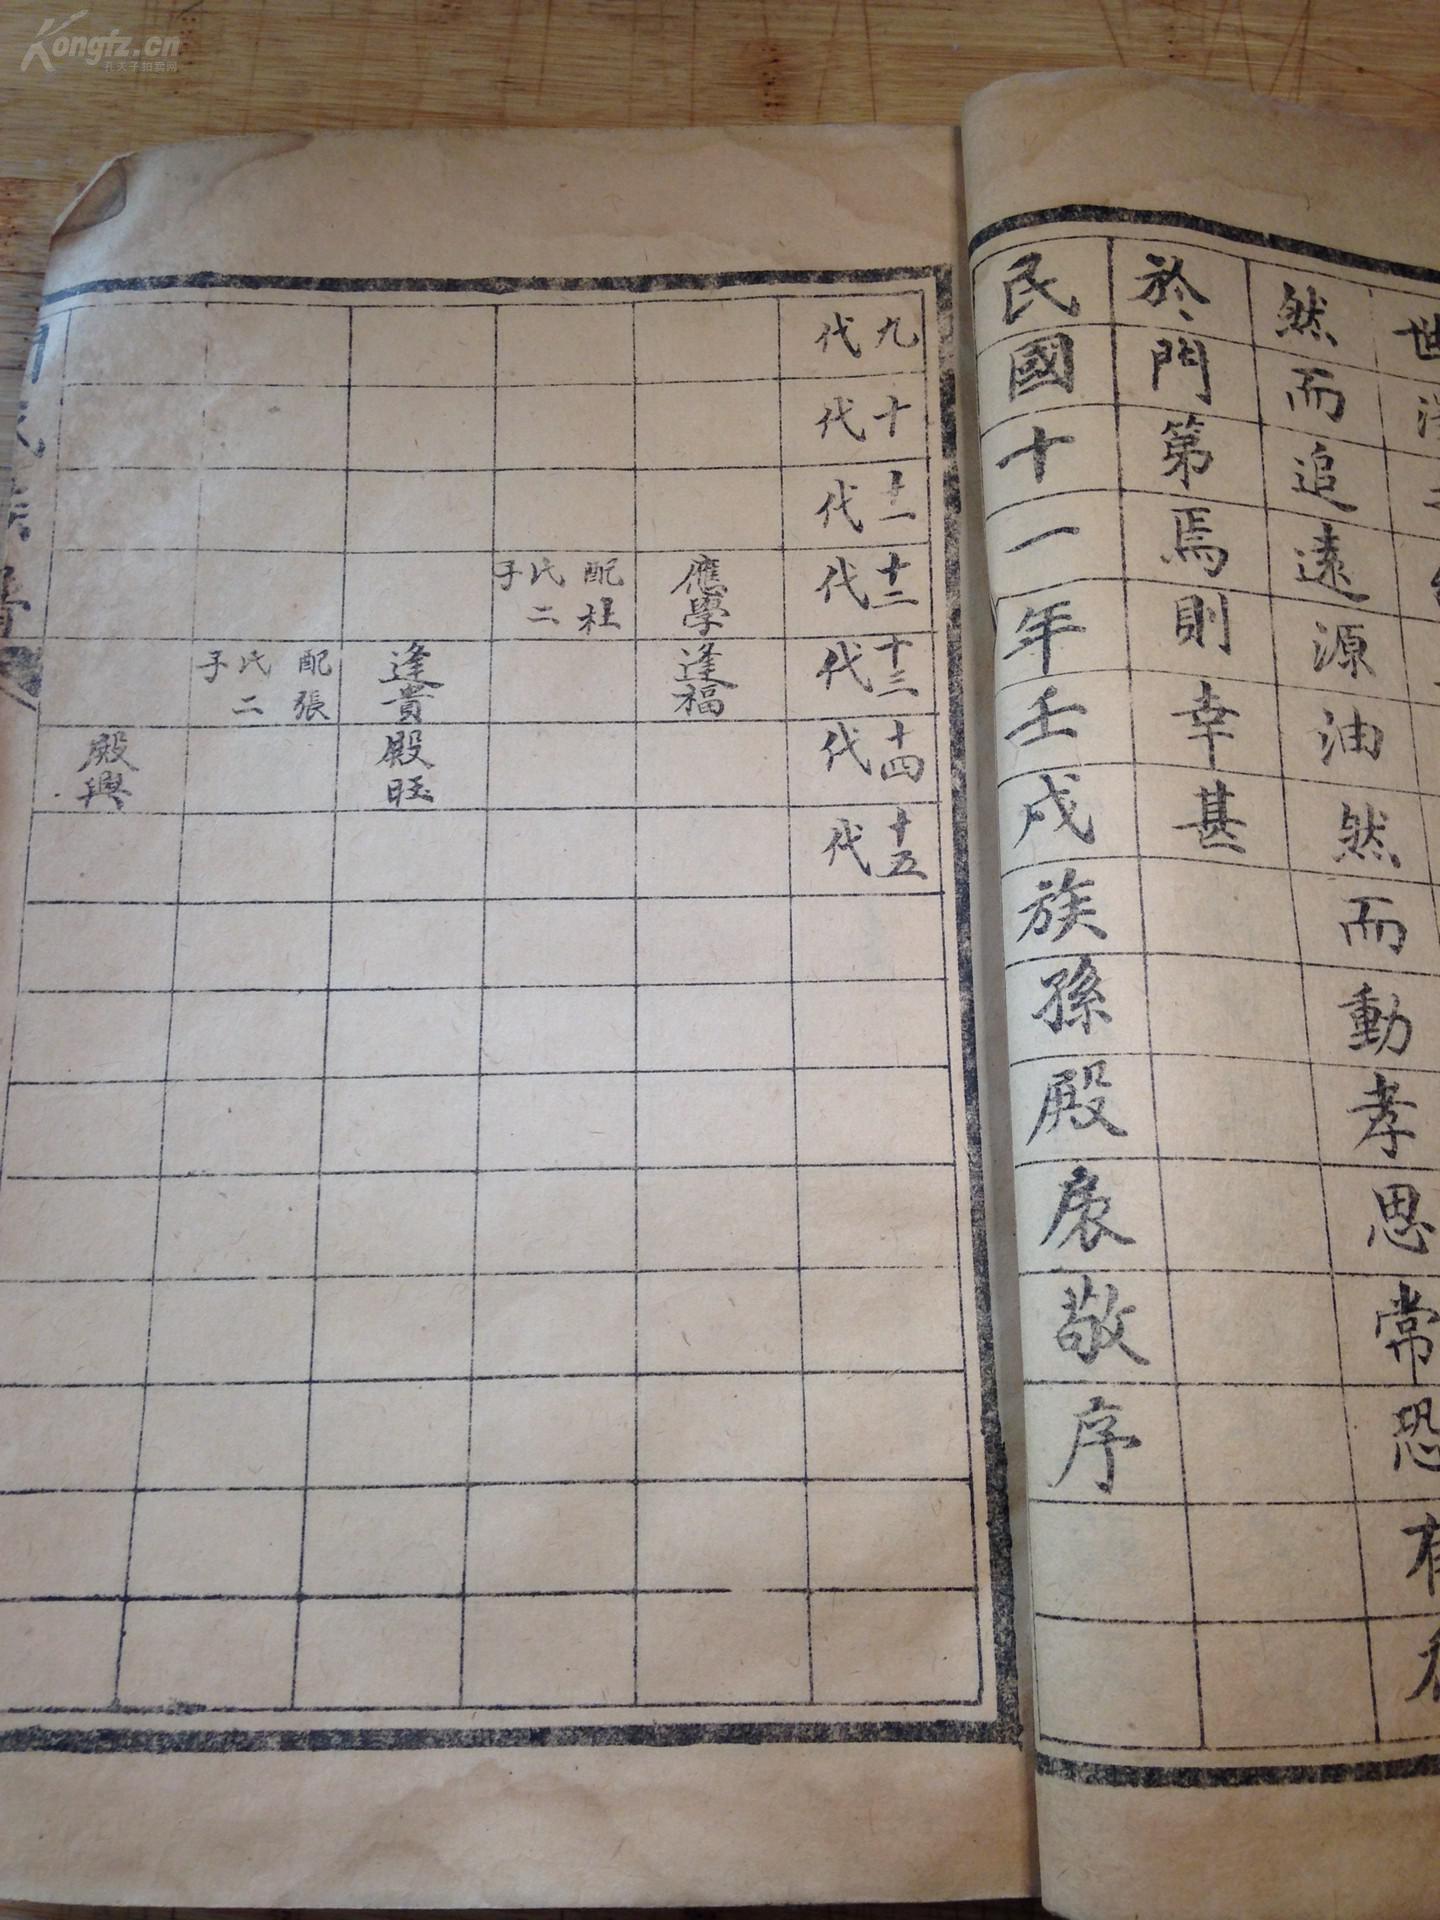 Kongfz.cn
孔夫子拍卖网
然而追遠源油然而動孝思常恐有
於門第焉則幸甚
民國十一年壬戌族孫殿扆敬序
九代
十代
十一代
十二代
十三代
十四代
十五代
應學
逢福
配杜氏二子
逢貴
殿旺
配張氏二子
殿興